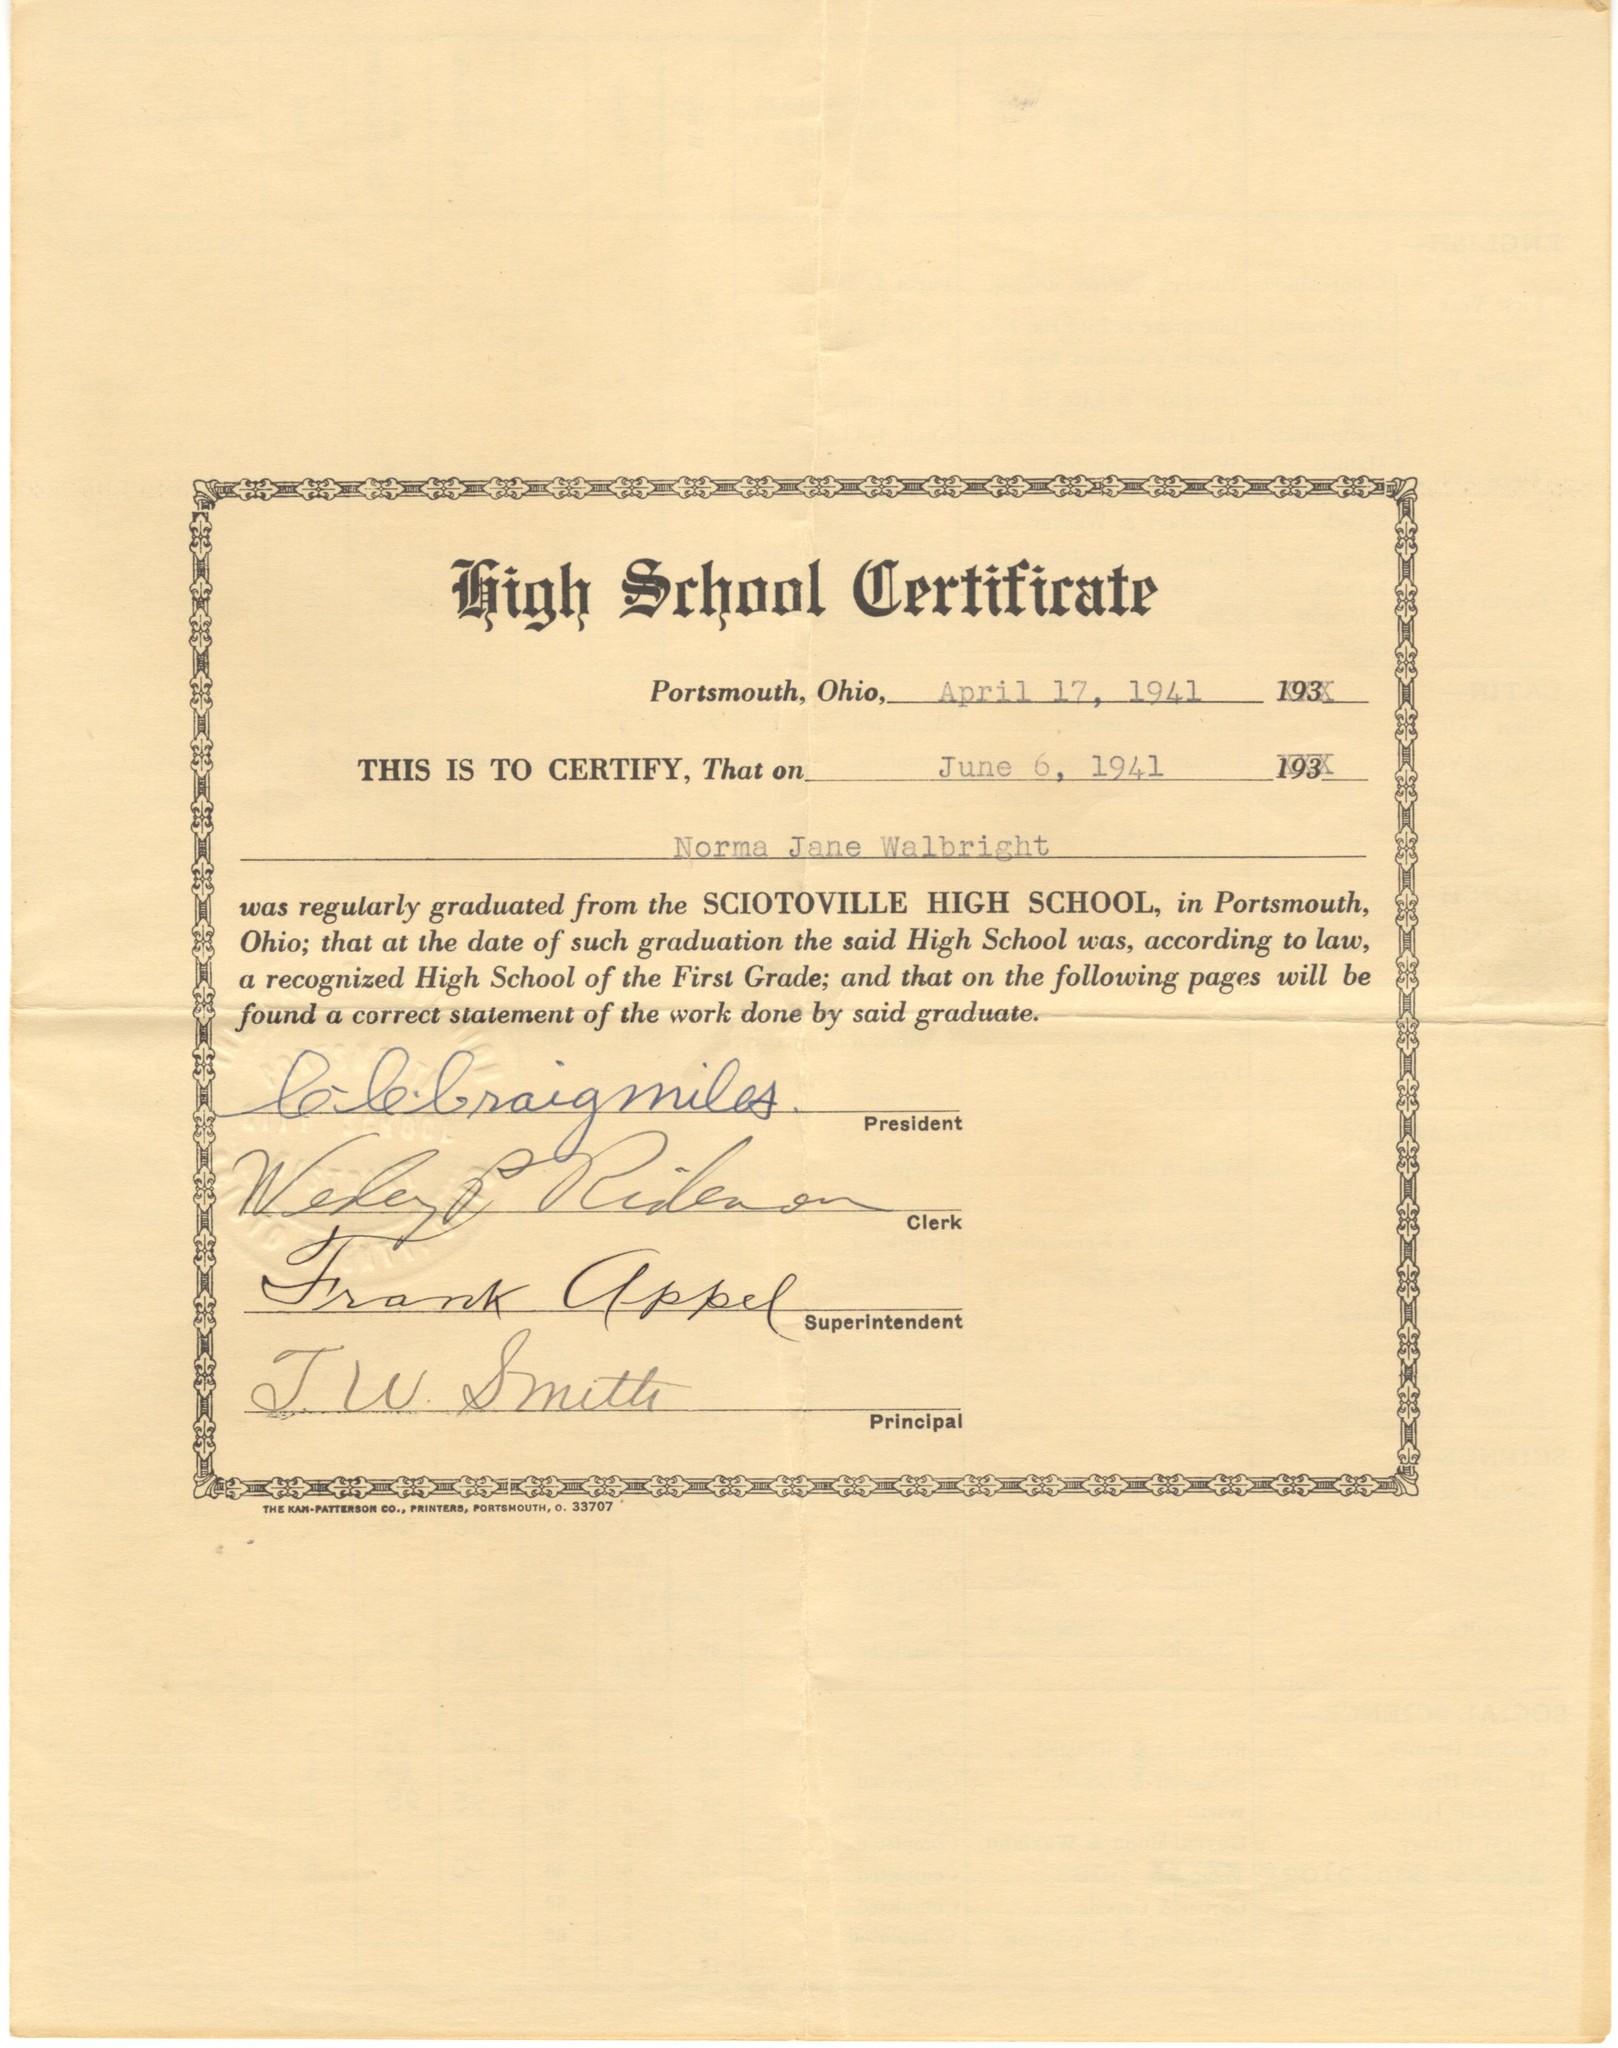 High School Certificate
Portsmouth, Ohio, April 17, 1941 193
THIS IS TO CERTIFY, That on June 6, 1941 193
Norma Jane Walbright
was regularly graduated from the SCIOTOVILLE HIGH SCHOOL, in Portsmouth,
Ohio; that at the date of such graduation the said High School was, according to law,
a recognized High School of the First Grade; and that on the following pages will be
found a correct statement of the work done by said graduate.
C. C. Craigmiles
President
Wesley P Ridenour
Clerk
Frank Appel
Superintendent
T. W. Smith
Principal
THE KAH-PATTERSON CO., PRINTERS, PORTSMOUTH, O. 33707